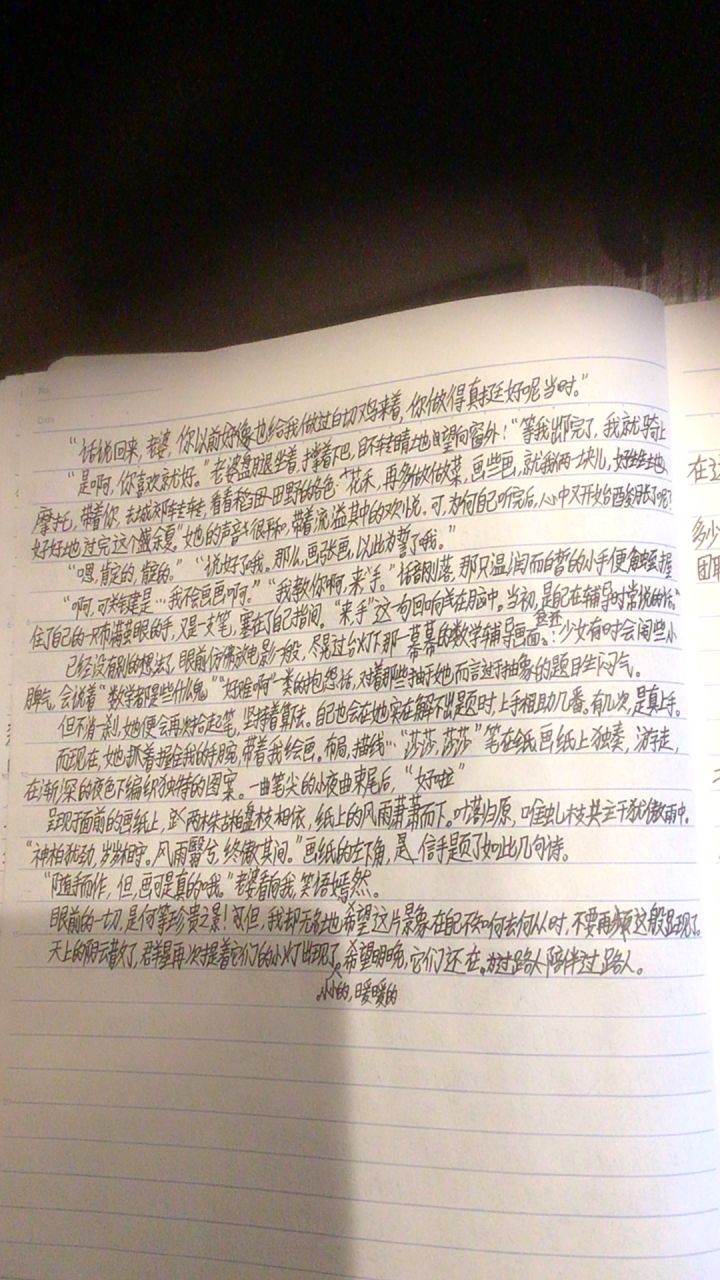 “话说回来,老婆,你以前好像也给我做过白切鸡来着,你做得真挺好呢当时。”
“是啊,你喜欢就好。”老婆盘腿坐着,撑着下巴,目不转睛地望向窗外!“等我出院了,我就骑上
摩托,带着你,去城郊转转,看看稻田田野的各色花禾,再多做做菜,画些画,就我俩一块儿,好好地
好好地过完这个盛夏。”她的声音很柔和,带着流溢其中的欢悦。可,为何自己听完后,心中又开始酸胀了呢?
“嗯,肯定的,肯定的。”“说好了哦。那么,画张画,以此为誓了哦。”
“啊,可关键是…我不会画画啊。”“我教你啊,来手。”话音刚落,那只温润而白皙的小手便触握
住了自己的一只布满茧眼的手,又是一支笔,塞在了自己指间。“来手”这一句回响在脑中。当初,是自己在辅导时常说的话。
已经没有别的想法了,眼前仿佛放电影一般,尽是过台灯下那一幕幕的数学辅导画面。:少女有时会闹些小
脾气,会说着“数学都是些什么鬼”“好难啊”一类的抱怨话,对着那些于她而言过于抽象的题目生闷气。
但不消一刹,她便会再次拾起笔,坚持着算法。自己也会在她实在解不出题时上手相助几番。有几次,是真上手。
而现在,她抓着握住我的手腕,带着我绘画。布局,描线…“莎莎,莎莎”笔在纸画纸上独奏,游走,
在渐深的夜色下编织独特的图案。一曲笔尖的小夜曲末尾后,“好啦”
呈现于面前的画纸上,两株古柏盘枝相依,纸上的风雨萧萧而下。叶落归原,唯虬枝共立于犹傲雨中。
“神柏犹劲,岁岁相守。风雨翳兮,终傲其间。”画纸的左下角,是信手题了如此几句诗。
“随手而作,但,画可是真的哦。”老婆看向我,笑语嫣然。
眼前的一切,是何等珍贵之景!可但,我却无名地希望这片景象在自己不知何去何从时,不要再频这般显现了。
天上的阴云散了,群星再次提着它们的小灯出现了。希望明晚,它们还在。为过路人陪伴过路人。
小小的,暖暖的
在这
多少
团聚